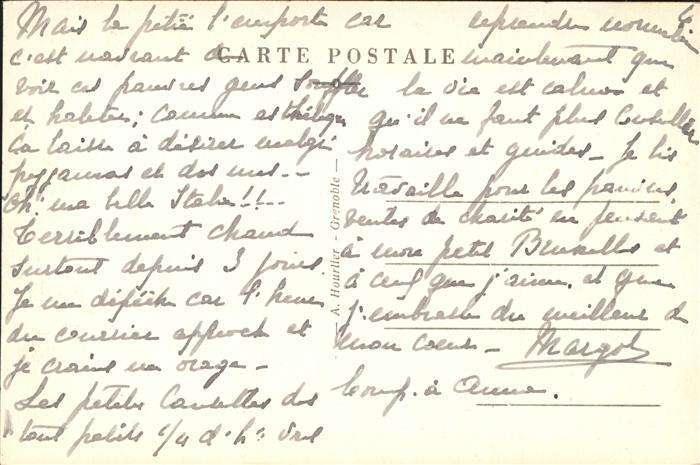 Mais la pitié l'emporte car
c'est navrant de
voir ces pauvres gens souffler
et haleter; comme esthétique
ça laisse à désirer malgré
pyjamas et dos nus...
Oh! ma belle Italie!!...
Terriblement chaud
surtout depuis 3 jours
Je me dépêche car l'heure
du courrier approche et
je crains un orage -
Les petites causettes des
tout petits 1/4 d'h.
CARTE POSTALE
A. Hourlier - Grenoble
6
reprendre
maintenant que
la vie est calme et
qu'il ne faut plus
horaires et guides - Je lis
travaille pour les
ventes de charité en pensant
à mon petit Bruxelles et
à ceux que j'aime, et que
j'embrasse du meilleur de
mon cœur - Margot
à Anna.